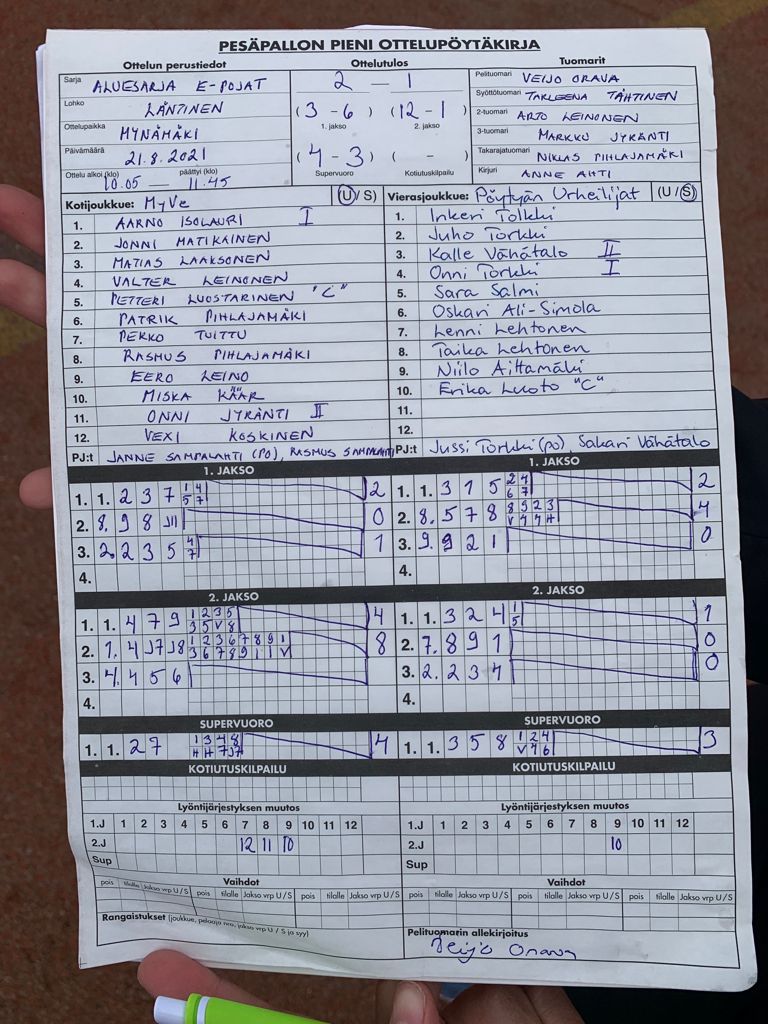 PESÄPALLON PIENI OTTELUPÖYTÄKIRJA
Ottelun perustiedot
Sarja ALUESARJA E-POJAT
Lohko LÄNTINEN
Ottelupaikka MYNÄMÄKI
Päivämäärä 21.8.2021
Ottelu alkoi (klo) 10.05 — päättyi (klo) 11.45
Ottelutulos
2 — 1
( 3 - 6 ) ( 12 - 1 )
1. jakso 2. jakso
( 4 - 3 ) ( - )
Supervuoro Kotiutuskilpailu
Tuomarit
Pelituomari VEIJO ORAVA
Syöttötuomari TARLEENA TÄHTINEN
2-tuomari ARTO LEINONEN
3-tuomari MARKKU JYRÄNTI
Takarajatuomari NIKLAS PIHLAJAMÄKI
Kirjuri ANNE AHTI
Kotijoukkue: MyVe (U / S)
1. AARNO ISOLAURI I
2. JONNI MATIKAINEN
3. MATIAS LAAKSONEN
4. VALTER LEINONEN
5. PETTERI LUOSTARINEN "C"
6. PATRIK PIHLAJAMÄKI
7. PEKKO TUITTU
8. RASMUS PIHLAJAMÄKI
9. EERO LEINO
10. MISKA KÄÄR
11. ONNI JYRÄNTI II
12. VEXI KOSKINEN
PJ:t JANNE SAMPALAHTI (PO), RASMUS SAMPALAHTI
Vierasjoukkue: Pöytyän Urheilijat (U / S)
1. Inkeri Tolkki
2. Juho Torkki
3. Kalle Vähätalo II
4. Onni Torkki I
5. Sara Salmi
6. Oskari Ali-Simola
7. Lenni Lehtonen
8. Taika Lehtonen
9. Niilo Aittamäki
10. Erika Luoto "C"
11.
12.
PJ:t Jussi Torkki (po), Sakari Vähätalo
1. JAKSO
1. 1. 2 3 7 1 4 2
5 7
2. 8. 9 8 J11 0
3. 2. 2 3 5 4 1
7
4.
1. JAKSO
1. 1. 3 1 5 2 4 2
6 7
2. 8. 5 7 8 8 9 2 3 4
V 4 4 H
3. 9. 9 2 1 0
4.
2. JAKSO
1. 1. 4 7 9 1 2 3 5 4
3 5 V 8
2. 1. 4 J7 J8 1 2 3 6 7 8 9 1 8
3 6 7 8 9 1 1 V
3. 4. 4 5 6
4.
2. JAKSO
1. 1. 3 2 4 1 1
5
2. 7. 8 9 1 0
3. 2. 2 3 4 0
4.
SUPERVUORO
1. 1. 2 7 1 3 4 8 4
H H 7 J7
SUPERVUORO
1. 1. 3 5 8 1 2 4 3
V 4 6
KOTIUTUSKILPAILU
KOTIUTUSKILPAILU
Lyöntijärjestyksen muutos
1.J 1 2 3 4 5 6 7 8 9 10 11 12
2.J 12 11 10
Sup
Lyöntijärjestyksen muutos
1.J 1 2 3 4 5 6 7 8 9 10 11 12
2.J 10
Sup
Vaihdot
pois tilalle Jakso vrp U / S pois tilalle Jakso vrp U / S pois tilalle Jakso vrp U / S
Vaihdot
pois tilalle Jakso vrp U / S pois tilalle Jakso vrp U / S pois tilalle Jakso vrp U / S
Rangaistukset (joukkue, pelaaja nro, jakso vrp U / S ja syy)
Pelituomarin allekirjoitus
Veijo Orava